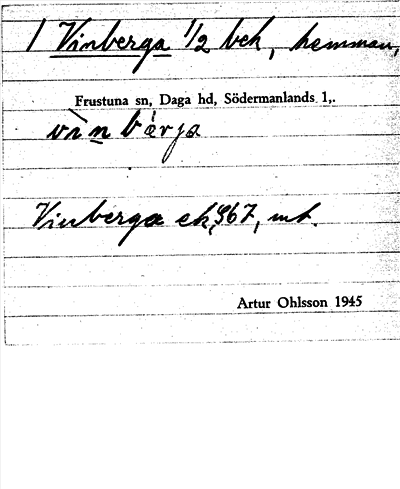 1 Vinberga 1/2 bek, hemman,
Frustuna sn, Daga hd, Södermanlands l,.
vìnbérja
Vinberga ek, 967, mt.
Artur Ohlsson 1945